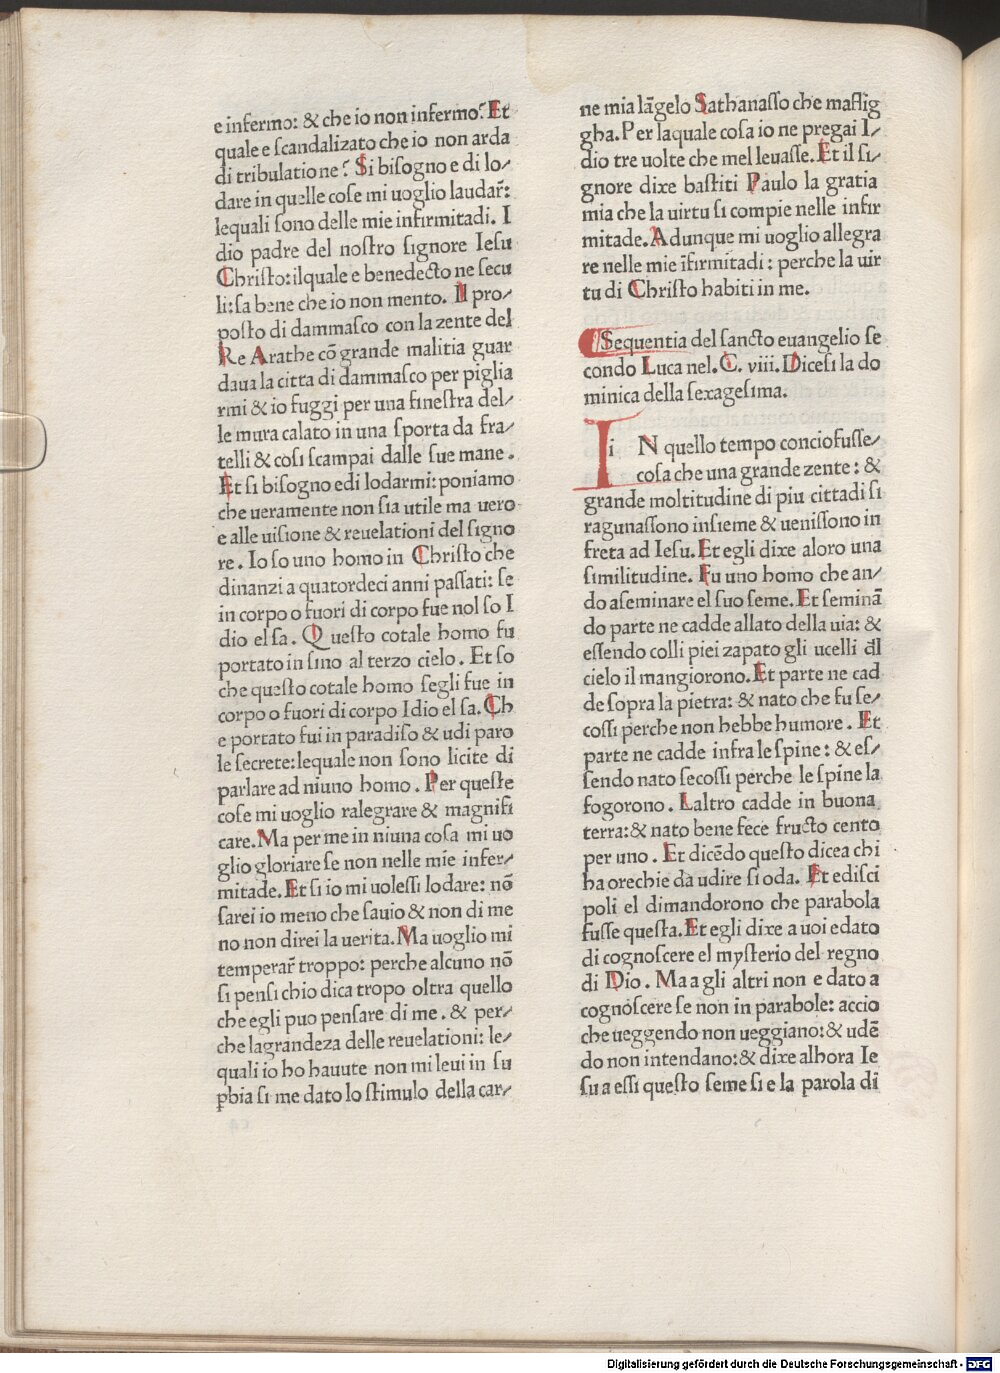 e infermo: & che io non infermo? Et
quale e scandalizato che io non arda
di tribulatione? Si bisogno e di lo/
dare in quelle cose mi uoglio laudar̃:
lequali sono delle mie infirmitadi. I
dio padre del nostro signore Iesu
Christo: ilquale e benedecto ne secu
li: sa bene che io non mento. Il pro/
posto di dammasco con la zente del
Re Arathe cõ grande malitia guar
daua la citta di dammasco per piglia
rmi & io fuggi per una finestra del/
le mura calato in una sporta da fra/
telli & cosi scampai dalle sue mane.
Et si bisogno edi lodarmi: poniamo
che ueramente non sia utile ma uero
e alle uisione & reuelationi del signo
re. Io so uno homo in Christo che
dinanzi a quatordeci anni passati: se
in corpo o fuori di corpo fue nol so I
dio el sa. Questo cotale homo fu
portato in sino al terzo cielo. Et so
che questo cotale homo segli fue in
corpo o fuori di corpo Idio el sa. Ch
e portato fui in paradiso & udi paro
le secrete: lequale non sono licite di
parlare ad niuno homo. Per queste
cose mi uoglio ralegrare & magnifi
care. Ma per me in niuna cosa mi uo
glio gloriare se non nelle mie infer/
mitade. Et si io mi uolessi lodare: nõ
sarei io meno che sauio & non di me
no non direi la uerita. Ma uoglio mi
temperar̃ troppo: perche alcuno nõ
si pensi chio dica tropo oltra quello
che egli puo pensare di me. & per/
che lagrandeza delle reuelationi: le/
quali io ho hauute non mi leui in su
ꝑbia si me dato lo stimulo della car/
ne mia lãgelo Sathanasso che mastig
gha. Per laquale cosa io ne pregai I/
dio tre uolte che mel leuasse. Et il si/
gnore dixe bastiti Paulo la gratia
mia che la uirtu si compie nelle infir
mitade. Adunque mi uoglio allegra
re nelle mie ĩfirmitadi: perche la uir
tu di Christo habiti in me.
Sequentia del sancto euangelio se
condo Luca nel. C. viii. Dicesi la do
minica della sexagesima.
IiN quello tempo conciofusse/
cosa che una grande zente: &
grande moltitudine di piu cittadi si
ragunassono insieme & uenissono in
freta ad Iesu. Et egli dixe aloro una
similitudine. Fu uno homo che an/
do aseminare el suo seme. Et seminã
do parte ne cadde allato della uia: &
essendo colli piei zapato gli ucelli dl̃
cielo il mangiorono. Et parte ne cad
de sopra la pietra: & nato che fu se/
cossi perche non hebbe humore. Et
parte ne cadde infra le spine: & es/
sendo nato secossi perche le spine la
fogorono. Laltro cadde in buona
terra: & nato bene fece fructo cento
per uno. Et dicẽdo questo dicea chi
ha orechie da udire si oda. Et edisci
poli el dimandorono che parabola
fusse questa. Et egli dixe a uoi edato
di cognoscere el mysterio del regno
di Dio. Ma agli altri non e dato a
cognoscere se non in parabole: accio
che ueggendo non ueggiano: & udẽ
do non intendano: & dixe alhora Ie
su a essi questo seme si e la parola di
Digitalisierung gefördert durch die Deutsche Forschungsgemeinschaft - DFG